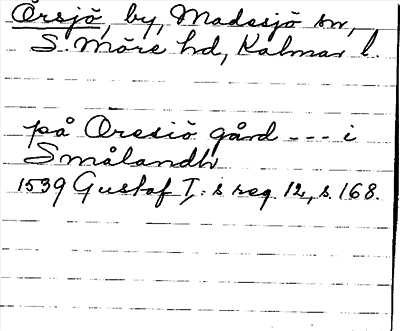 Örsjö, by, Madesjö sn,
S. Möre hd, Kalmar l.
på Oresiö gård --- i
Smålandh
1539 Gustaf I:s reg. 12, s. 168.